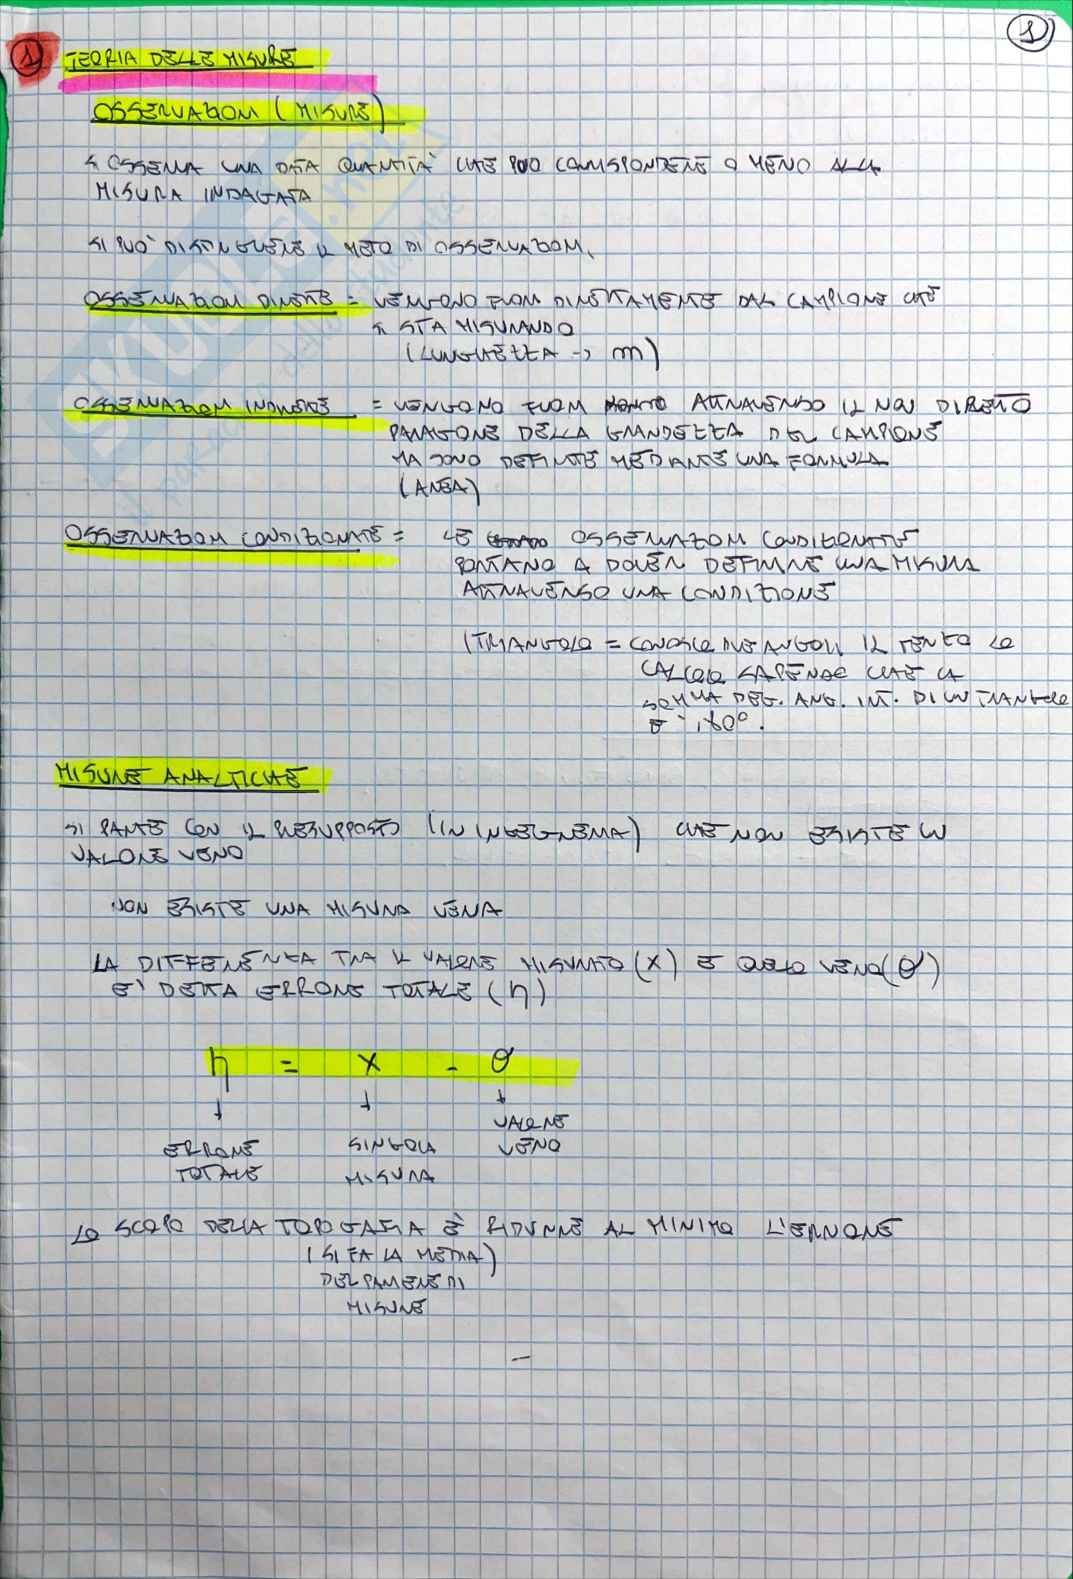 1
1 TEORIA DELLE MISURE
OSSERVAZIONI (MISURE)
SI OSSERVA UNA DATA QUANTITÀ CHE PUÒ CORRISPONDERE O MENO ALLA
MISURA INDAGATA
SI PUÒ DISTINGUERE IL METODO DI OSSERVAZIONI
OSSERVAZIONI DIRETTE = VENGONO FUORI DIRETTAMENTE DAL CAMPIONE CHE
SI STA MISURANDO
(LUNGHEZZA -> m)
OSSERVAZIONI INDIRETTE = VENGONO FUORI ATTRAVERSO IL NON DIRETTO
PARAGONE DELLA GRANDEZZA DEL CAMPIONE
MA SONO DEFINITE MEDIANTE UNA FORMULA
(AREA)
OSSERVAZIONI CONDIZIONATE = LE OSSERVAZIONI CONDIZIONATE
PORTANO A DOVER DEFINIRE UNA MISURA
ATTRAVERSO UNA CONDIZIONE
(TRIANGOLO = CONOSCO DUE ANGOLI, IL TERZO LO
CALCOLO SAPENDO CHE LA
SOMMA DEG. ANG. INT. DI UN TRIANGOLO
E' 180°.
MISURE ANALITICHE
SI PARTE CON IL PRESUPPOSTO (IN INGEGNERIA) CHE NON ESISTE UN
VALORE VERO
NON ESISTE UNA MISURA VERA
LA DIFFERENZA TRA IL VALORE MISURATO (X) E QUELLO VERO (θ)
E' DETTA ERRORE TOTALE (η)
η = x - θ
VALORE
ERRORE SINGOLA VERO
TOTALE MISURA
LO SCOPO DELLA TOPOGRAFIA È RIDURRE AL MINIMO L'ERRORE
(SI FA LA MEDIA)
DEL PAMENE DI
MISURE